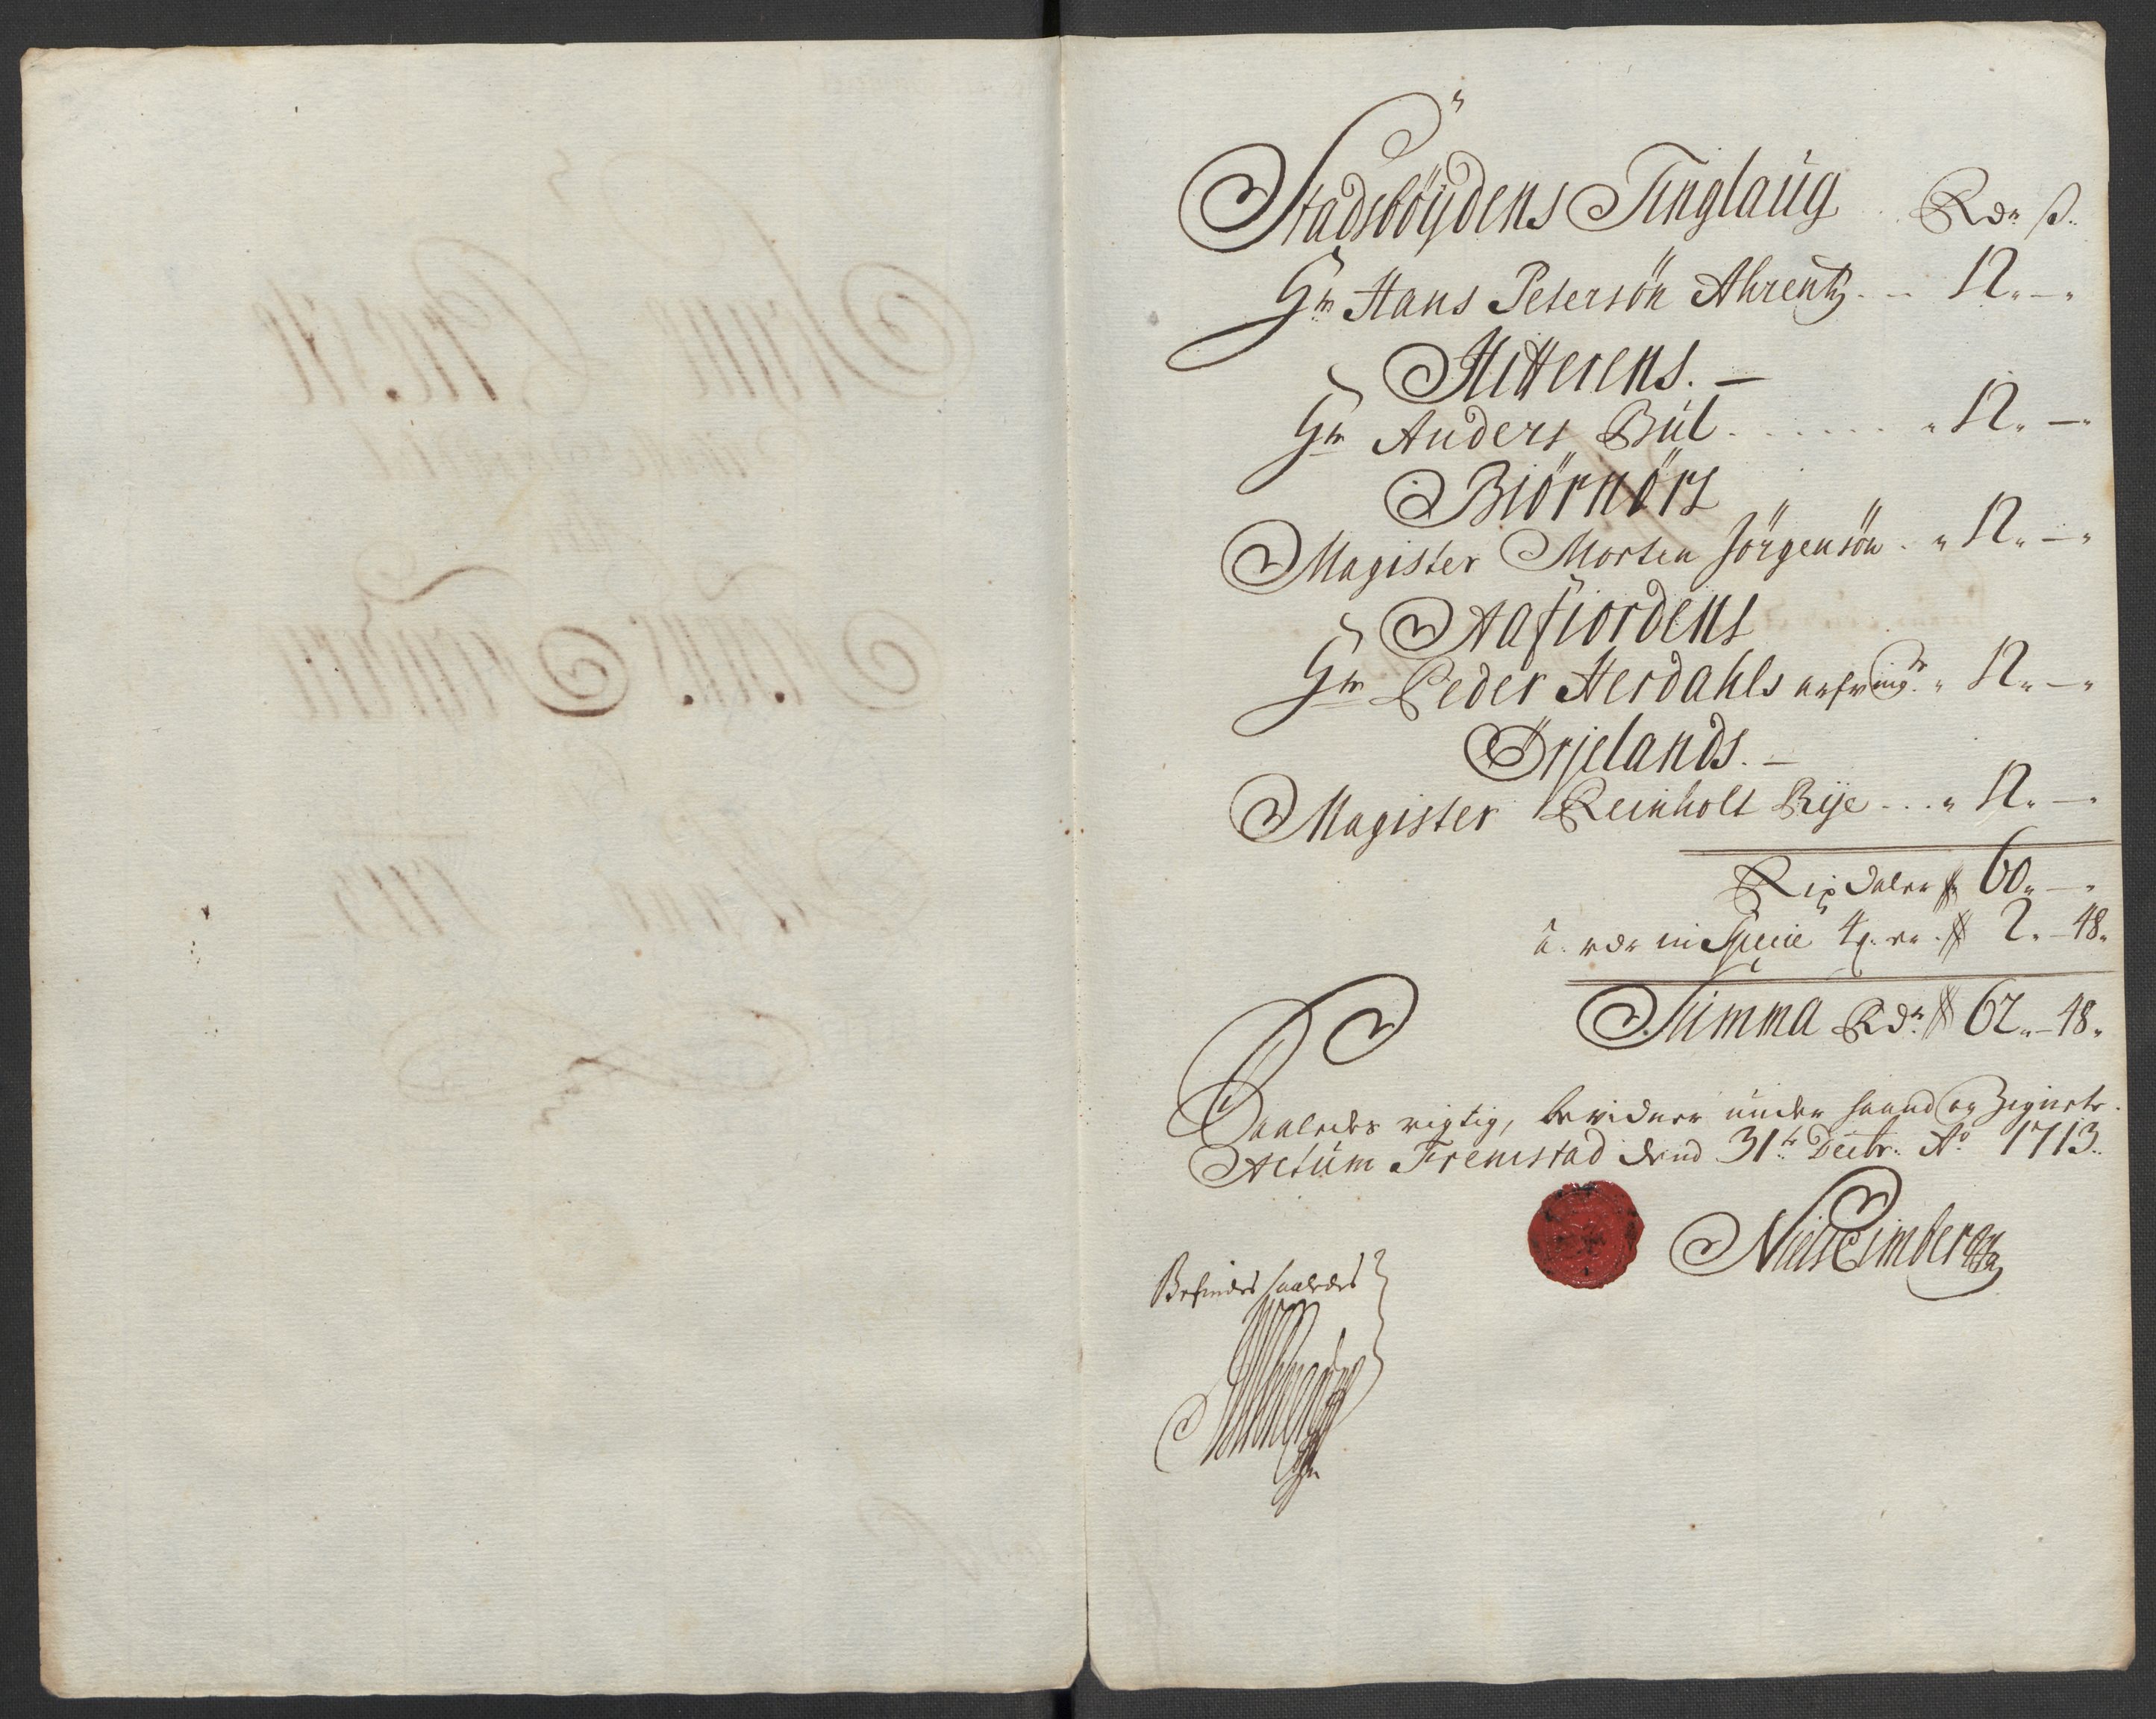 Stadsböÿdens Tinglaug Rdr ß.
Hr Hans Petersön Ahrentz .. 12. — "
Hitterens. —
Hr Anders Bül . . . . . . " 12. — "
Biörnörs
Magister Morten Jörgensön . " 12. — "
Aafiordens
Hr Peder Herdahls arfving. " 12. — "
Örjelands. —
Magister Reinholt Rÿe . . . " 12. — "
Rixdaler 60. — "
in Specie 2. — 48.
Summa Rdr 62. — 48.
Saaledes rigtig, bevidner under haand og Zignete.
Actüm Fremstad dend 31te Decbr. Ao 1713.
Niels Eimberg
Befindes saaledes